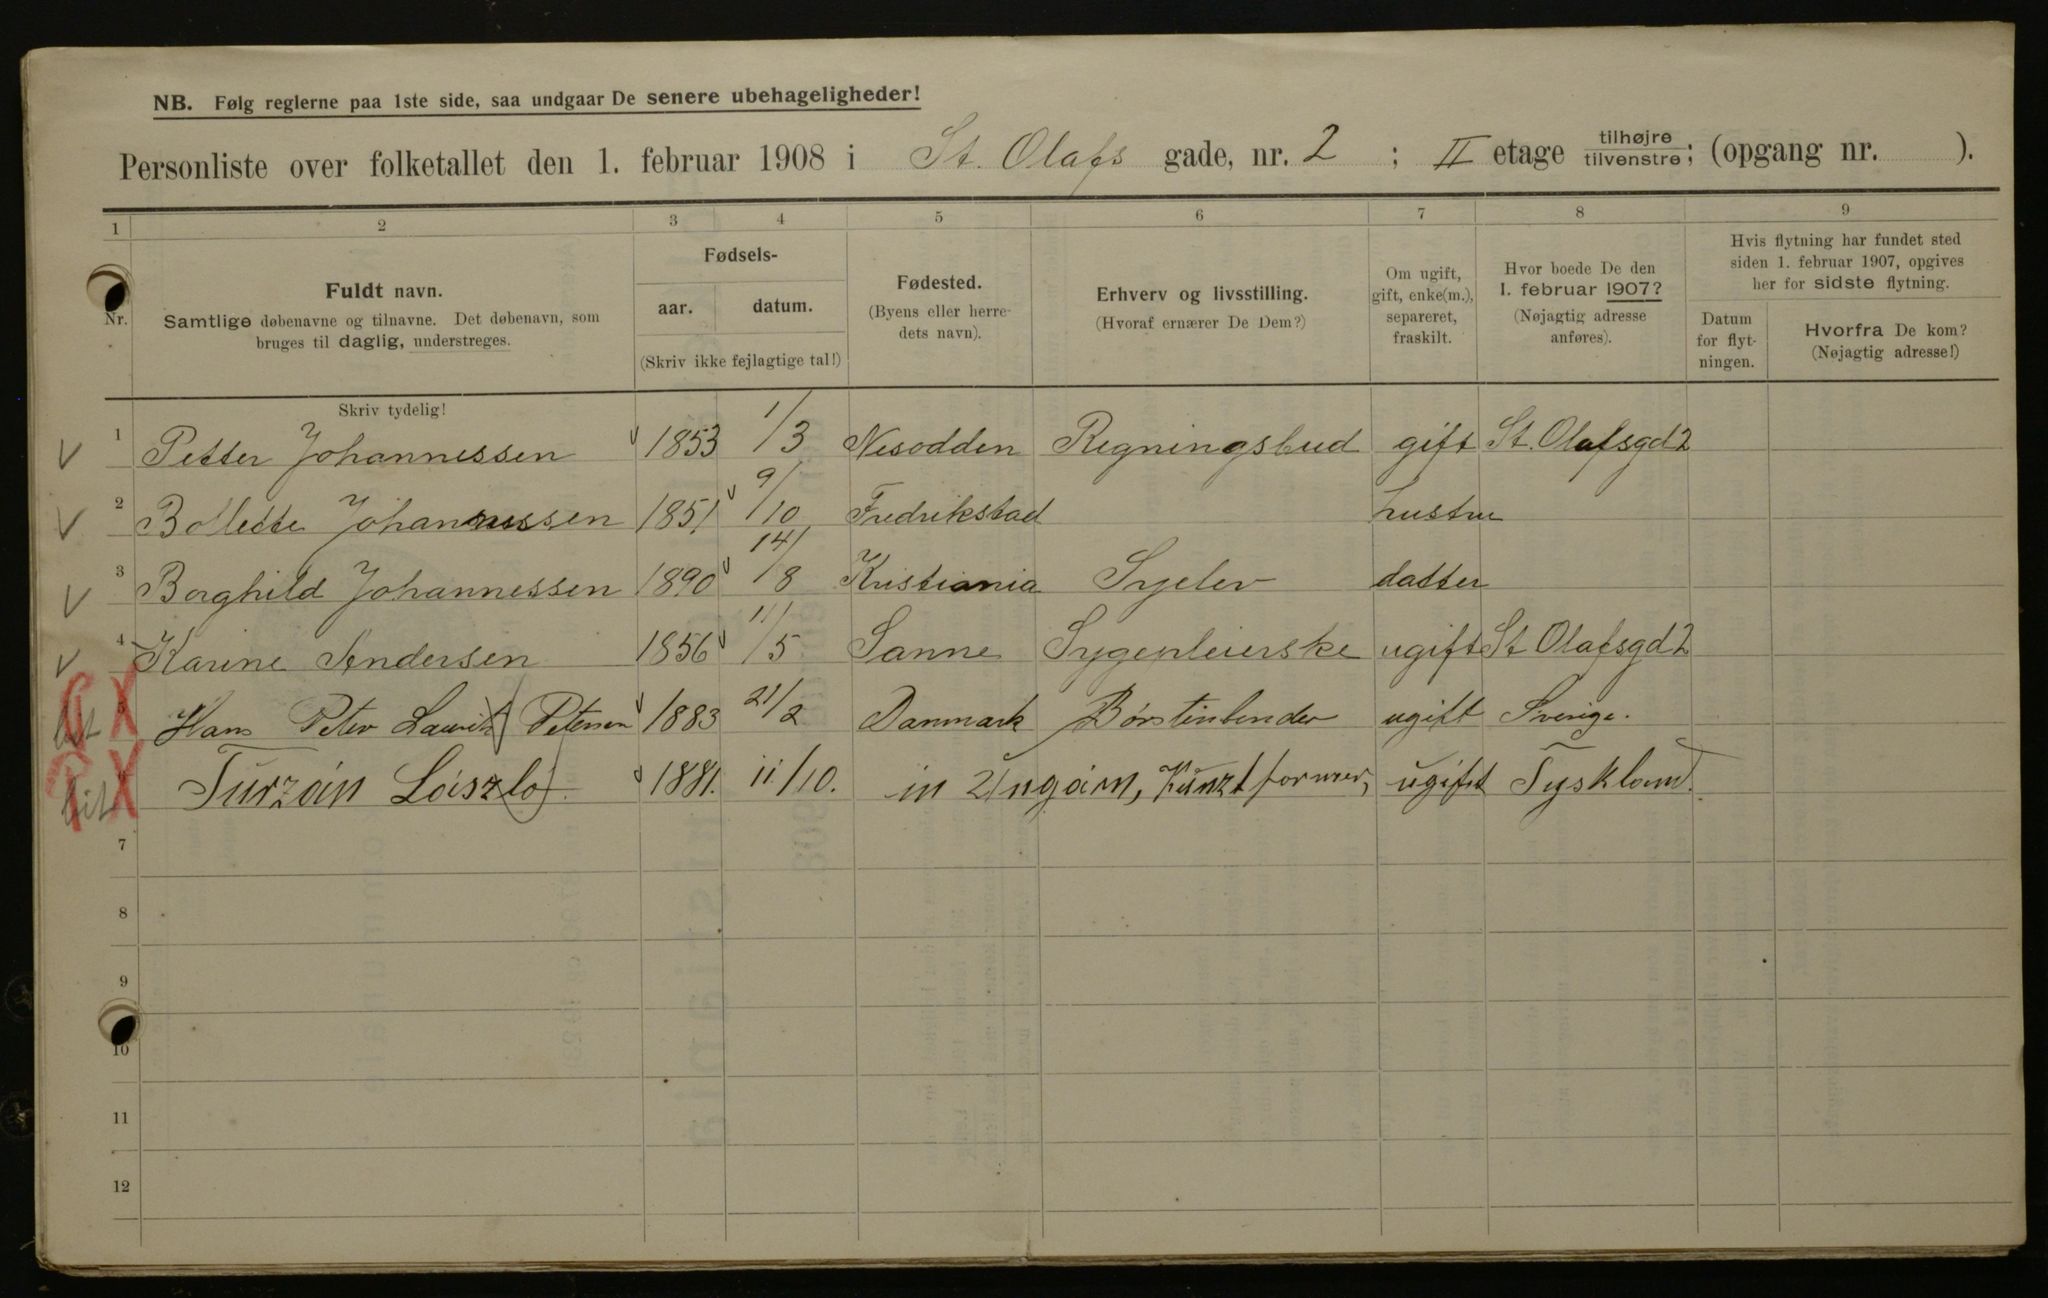 NB. Følg reglerne paa 1ste side, saa undgaar De senere ubehageligheder!
Personliste over folketallet den 1. februar 1908 i St. Olafs gade, nr. 2 ; II etage tilhøjre/tilvenstre; (opgang nr. ).
1 2 3 4 5 6 7 8 9
Nr.
Fuldt navn.
Samtlige døbenavne og tilnavne. Det døbenavn, som
bruges til daglig, understreges.
Skriv tydelig!
Fødsels-
aar. datum.
(Skriv ikke fejlagtige tal!)
Fødested.
(Byens eller herre-
dets navn).
Erhverv og livsstilling.
(Hvoraf ernærer De Dem?)
Om ugift,
gift, enke(m.),
separeret,
fraskilt.
Hvor boede De den
1. februar 1907?
(Nøjagtig adresse
anføres).
Hvis flytning har fundet sted
siden 1. februar 1907, opgives
her for sidste flytning.
Datum
for flyt-
ningen.
Hvorfra De kom?
(Nøjagtig adresse!)
1 Petter Johannessen 1853 1/3 Nesodden Regningsbud gift St. Olafsgd 2
2 Bollette Johannessen 1851 9/10 Fredrikstad hustru
3 Borghild Johannessen 1890 14/8 Kristiania Syelev datter
4 Karine Andersen 1856 11/5 Sanne Sygepleierske ugift St Olafsgd 2
5 Hans Peter Lauritz Petersen 1883 21/2 Danmark Børstenbinder ugift Sverige.
Turzán László 1881. 11/10. in Ungarn, Kunztformer, ugift Tyskland.
7
8
9
10
11
12